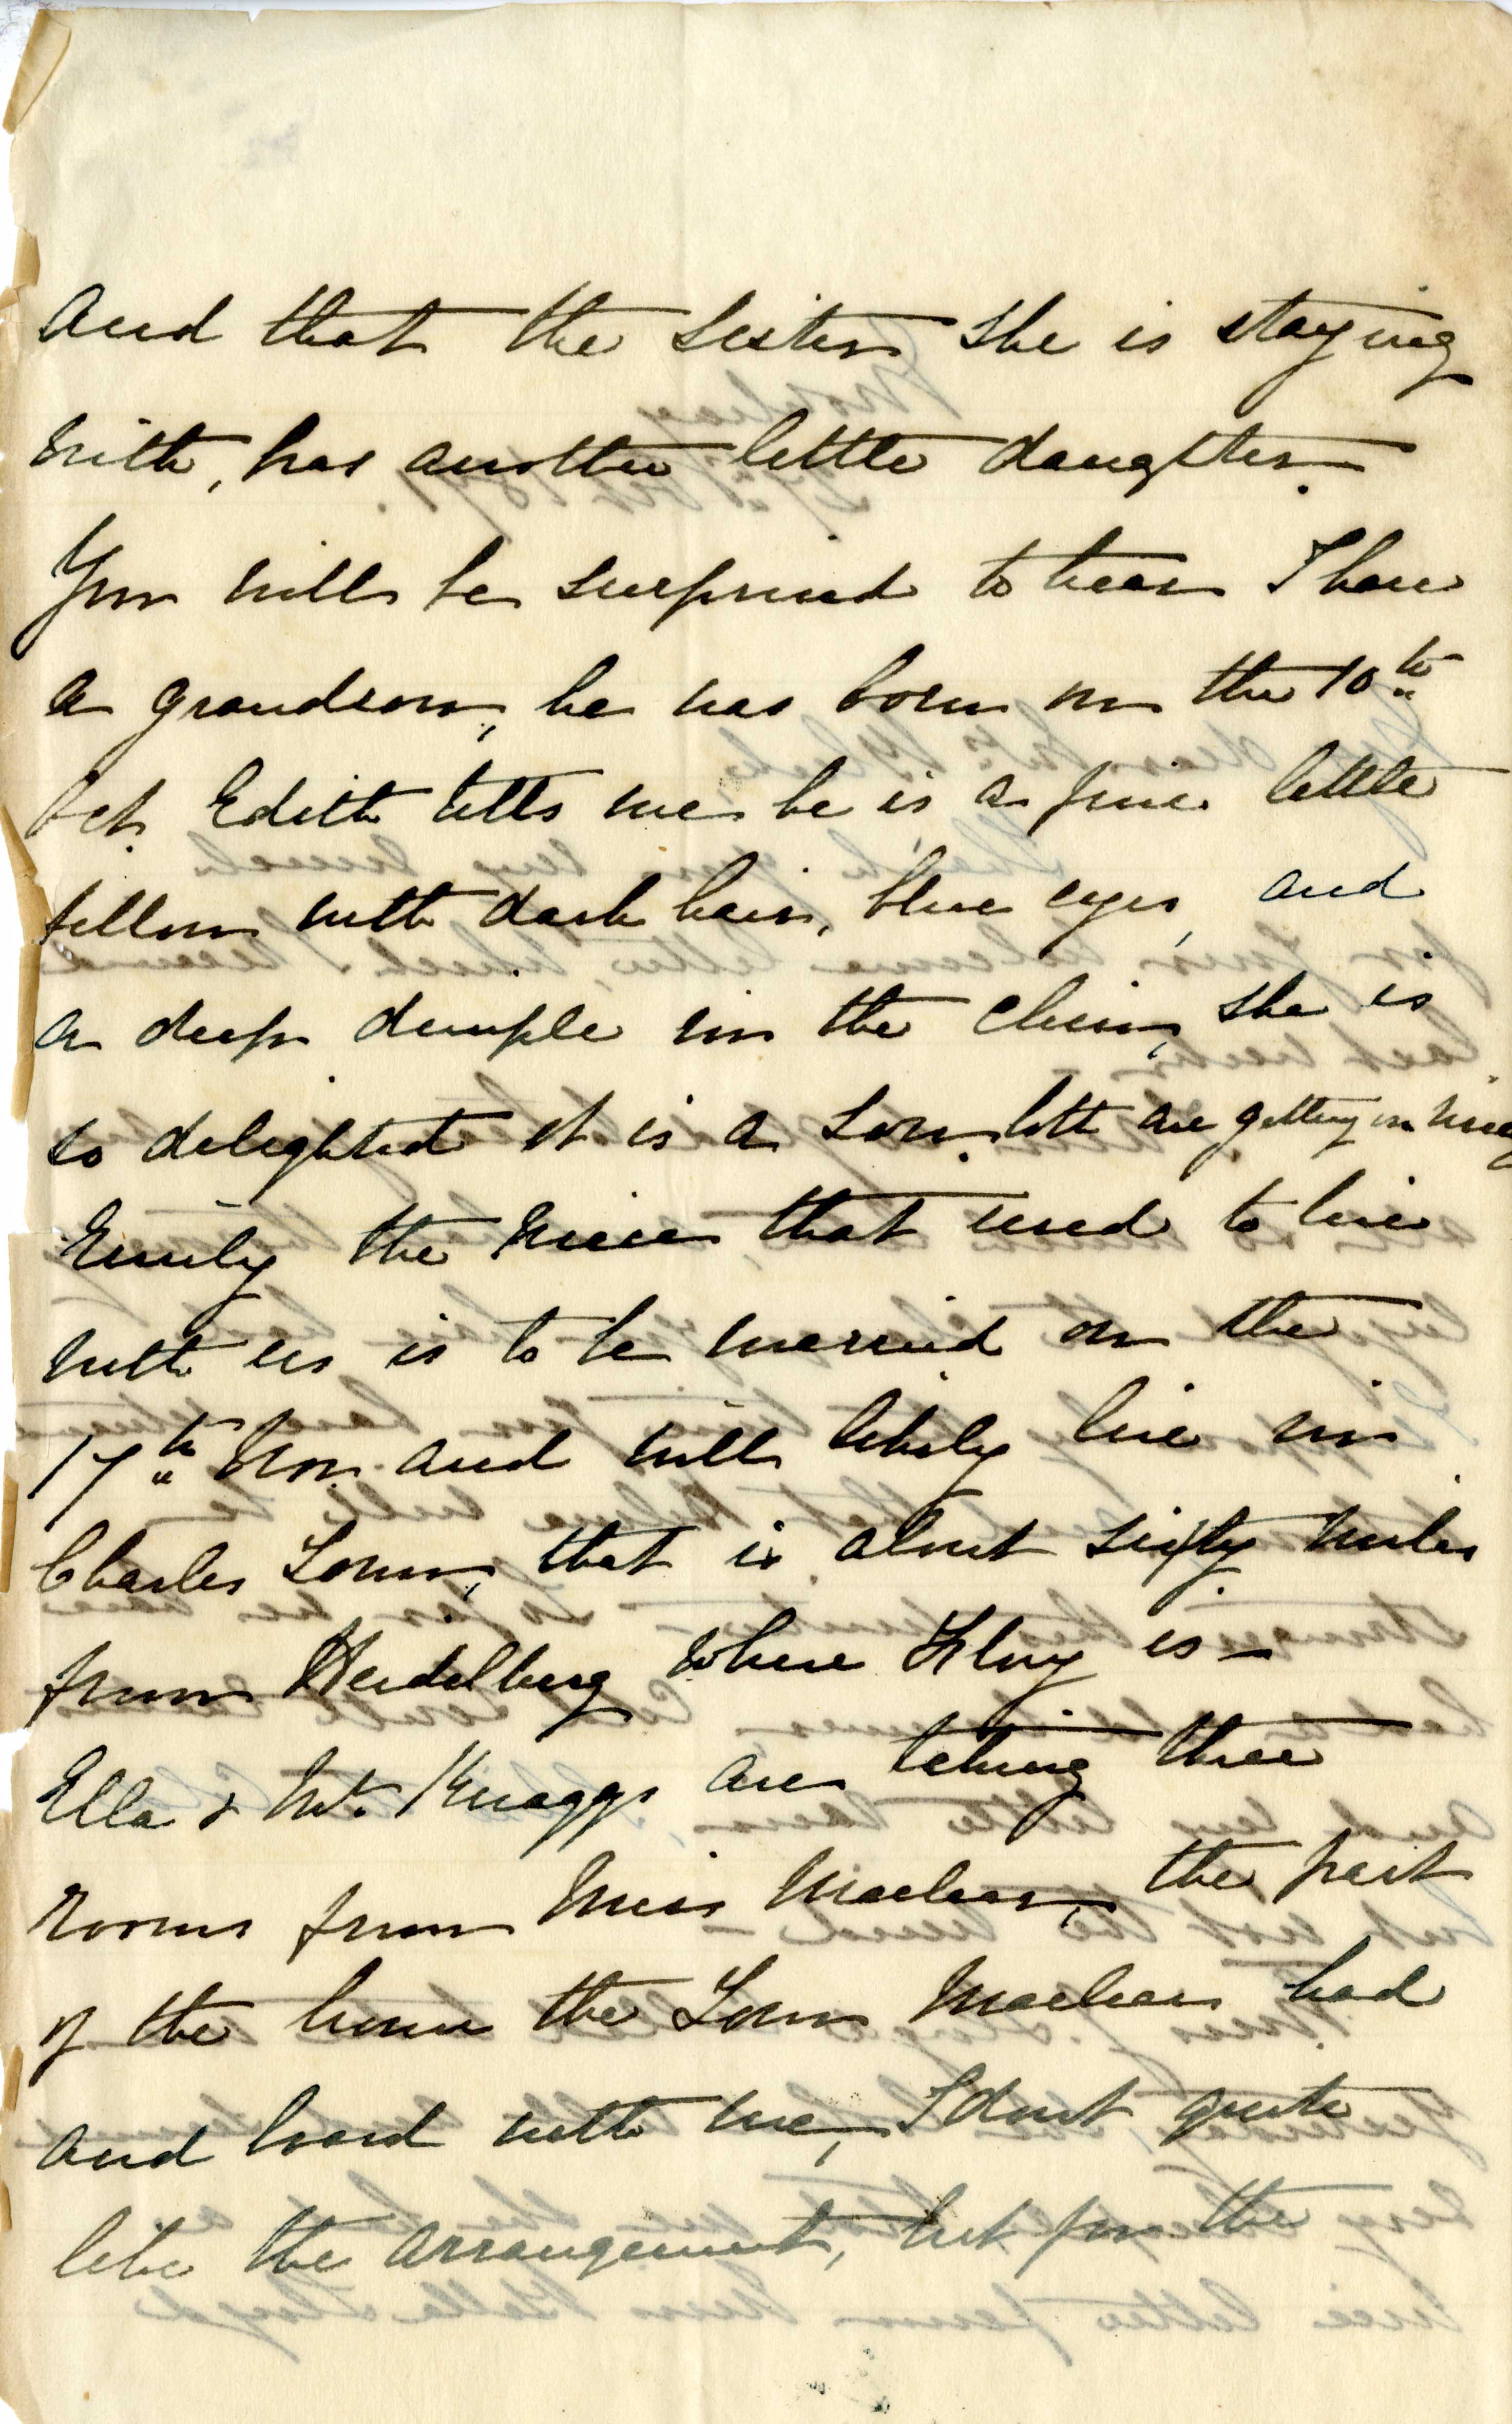 and that the sister she is staying
with, has another little daughter.
You will be surprised to hear I have
a grandson, he was born on the 10th
Oct. Edith tells me he is a fine little
fellow with dark hair, blue eyes, and
a deep dimple in the chin, she is
so delighted it is a son. both are getting on nicely
Emily the niece that used to live
with us is to be married on the
17th Nov. and will likely live in
Charles Town, that is about sixty miles
from Heidelberg where Flory is –
Ella & Mr. Knaggs are taking three
rooms from Miss Maclear, the part
of the house the Tom Maclears had
and board with me, I dont quite
like the arrangement, but for the